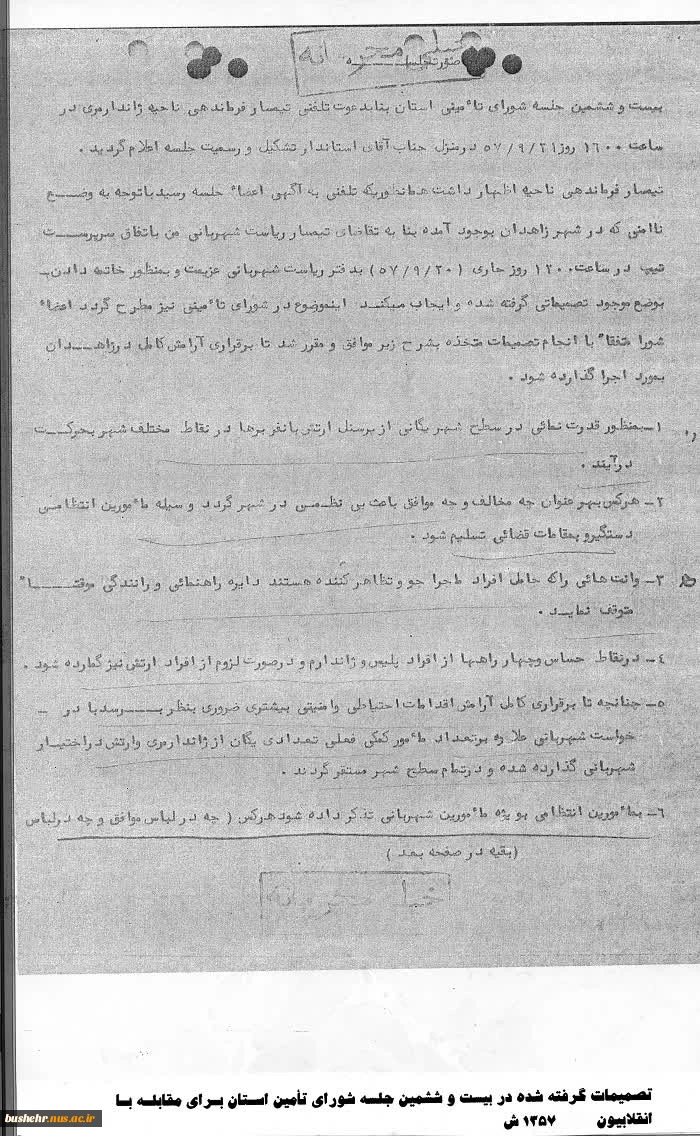 خیلی محرمانه
صورتجلسه
بیست و ششمین جلسه شورای تاٴمینی استان بنابدعوت تلفنی تیمسار فرماندهی ناحیه ژاندارمری در
ساعت ۱۶۰۰ روز ۵۷/۹/۲۱ درمنزل جناب آقای استاندار تشکیل و رسمیت جلسه اعلام گردید .
تیمسار فرماندهی ناحیه اظهار داشت همانطوریکه تلفنی به آگهی اعضاٴ جلسه رسید باتوجه به وضـــع
ناامنی که در شهر زاهدان بوجود آمده بنا به تقاضای تیمسار ریاست شهربانی من باتفاق سرپرســـت
تیپ در ساعت ۱۲۰۰ روز جاری (۵۷/۹/۲۰) بدفتر ریاست شهربانی عزیمت و بمنظور خاتمه دادن بـ
بوضع موجود تصمیماتی گرفته شده و ایجاب میکنـد اینموضوع در شورای تاٴمینی نیز مطرح گردد اعضاٴ
شورا متفقاً با انجام تصمیمات متخذه بشرح زیر موافق و مقرر شد تا برقراری آرامش کامل درزاهـــدان
بمورد اجرا گذارده شود .
۱ــ بمنظور قدرت نمائی در سطح شهر یگانی از پرسنل ارتش بانفربرها در نقاط مختلف شهر بحرکـــت
درآیند .
۲ــ هرکس بهر عنوان چه مخالف و چه موافق باعث بی نظـمی در شهر گردد وسیله ماٴمورین انتظامـی
دستگیر و بمقامات قضائی تسلیم شود .
۳ــ وانت هائی راکه حامل افراد ماجرا جو و تظاهر کننده هستند دایره راهنمائی و رانندگی موقتــــاً
متوقف نمایـد .
۴ــ درنقاط حساس و چهار راهها از افراد پلیس و ژاندارم و درصورت لزوم از افراد ارتش نیز گمارده شود .
۵ــ چنانچه تا برقراری کامل آرامش اقدامات احتیاطی و امنیتی بیشتری ضروری بنظر بـــرسد با در ــ
خواست شهربانی علاوه برتعداد ماٴمور کمکی فعلی تعدادی یگان از ژاندارمری و ارتش دراختیـار
شهربانی گذارده شده و درتمام سطح شهر مستقر گردند .
۶ــ بماٴمورین انتظامی بویژه ماٴمورین شهربانی تذکر داده شود هرکس ( چه در لباس موافق و چه در لباس
(بقیه در صفحه بعد )
خیلی محرمانه
تصمیمات گرفته شده در بیست و ششمین جلسه شورای تأمین استان برای مقابله با
انقلابیون ۱۳۵۷ ش
bushehr.nus.ac.ir